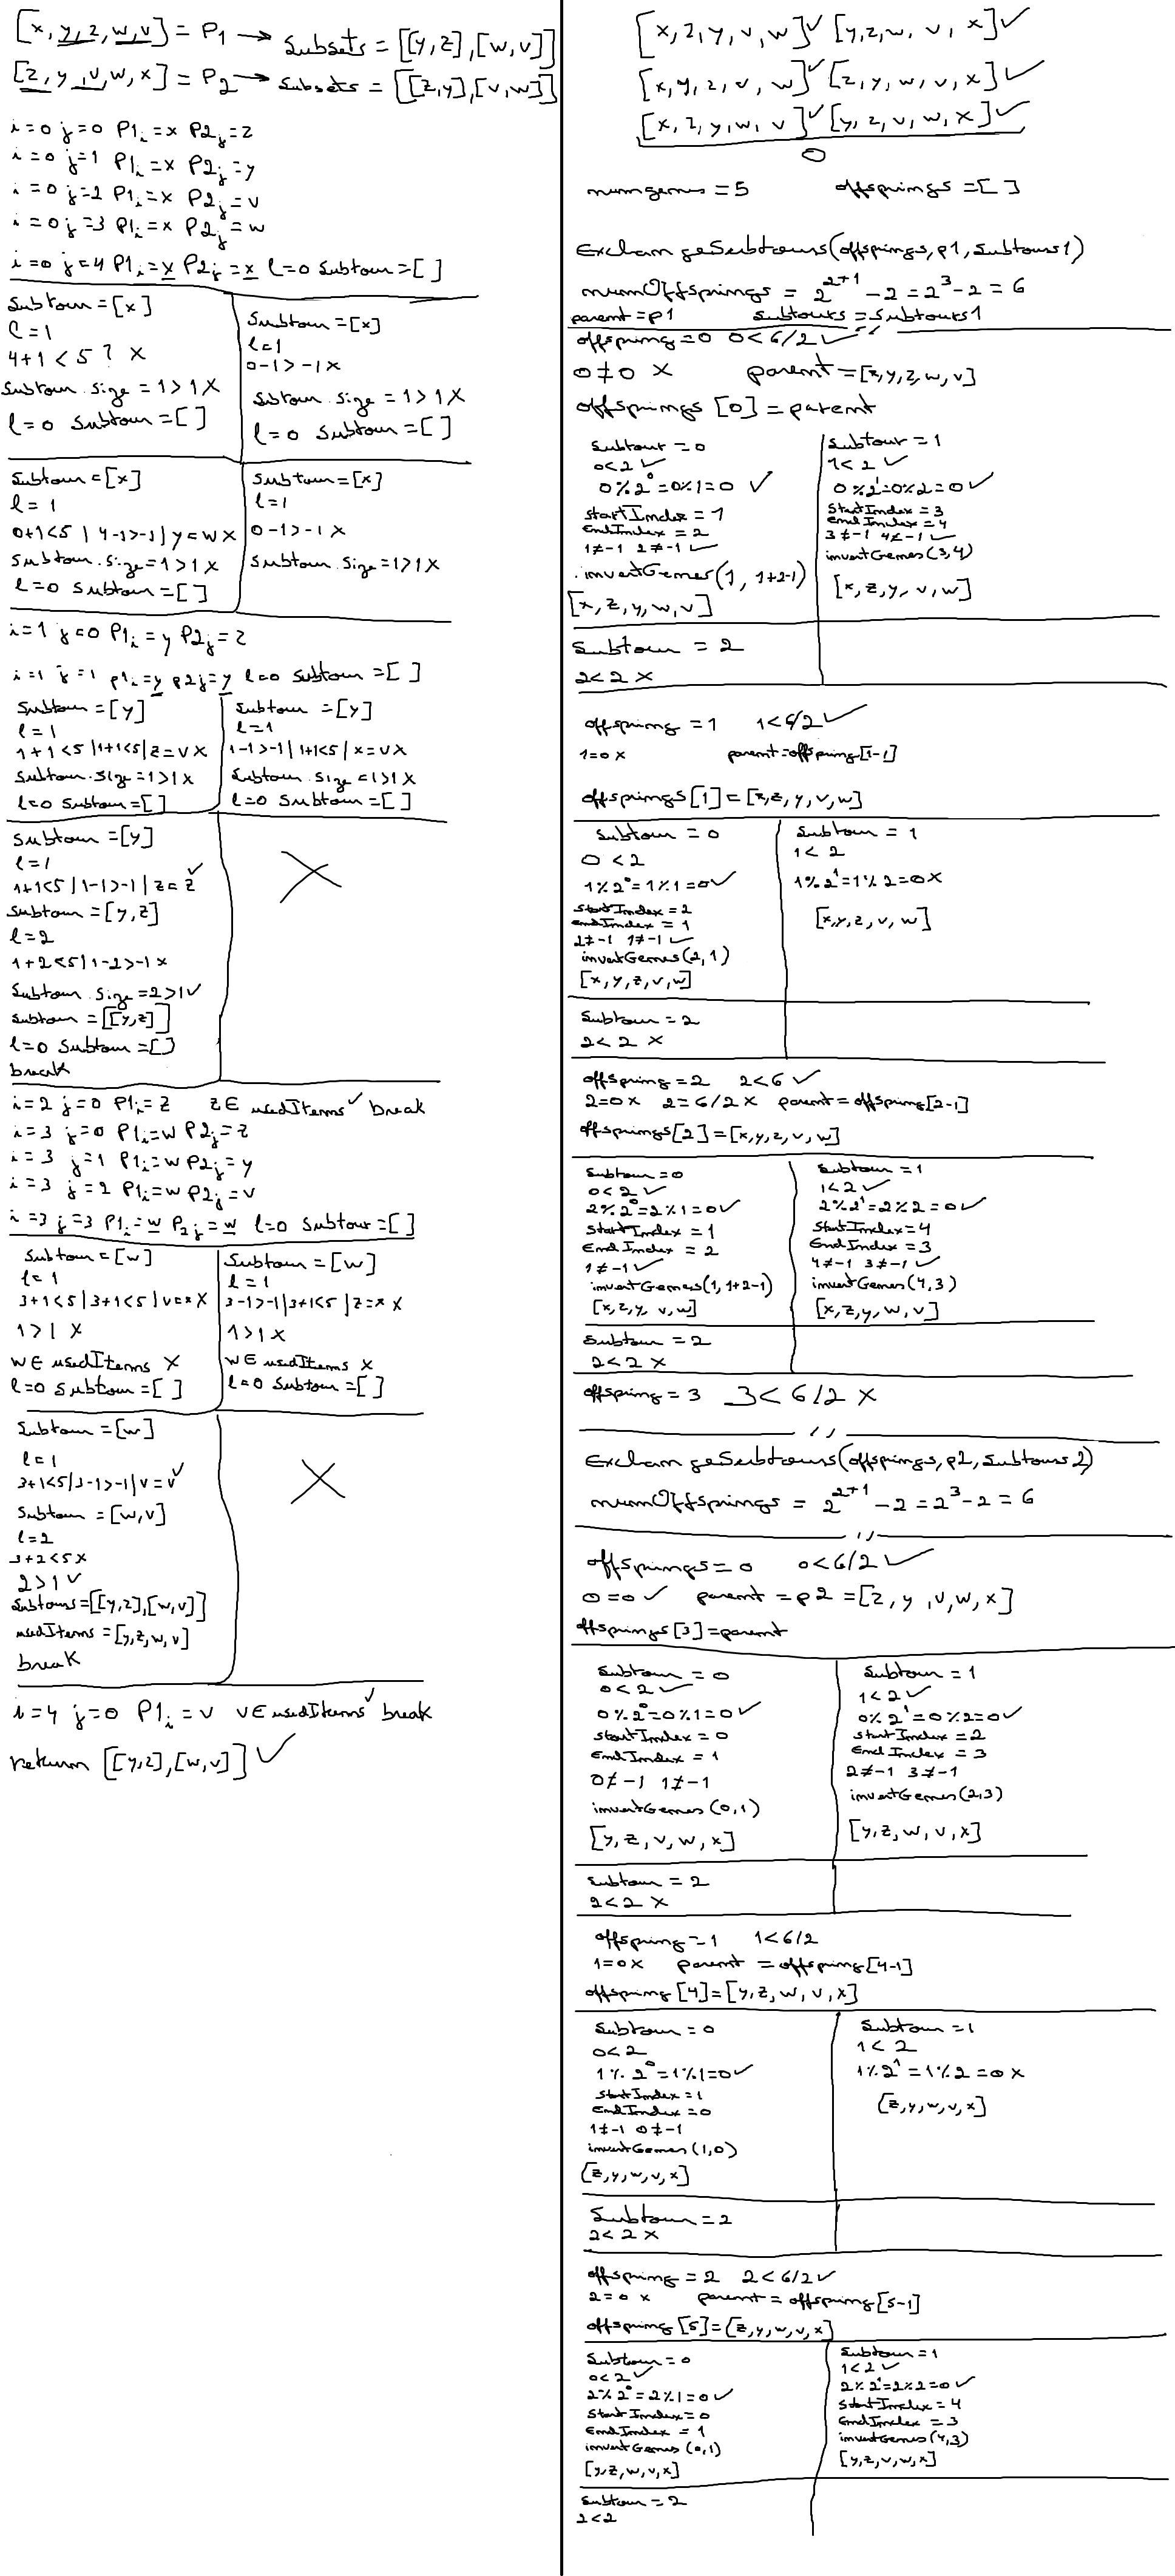 [x, y, z, w, v] = P1 → Subsets = [[y, z], [w, v]]
[z, y, v, w, x] = P2 → Subsets = [[z, y], [v, w]]
i=0 j=0 P1i=x P2j=z
i=0 j=1 P1i=x P2j=y
i=0 j=2 P1i=x P2j=v
i=0 j=3 P1i=x P2j=w
i=0 j=4 P1i=x P2j=x l=0 Subtour=[ ]
Subtour=[x]
l=1
4+1<5? X
Subtour.size=1>1 X
l=0 Subtour=[ ]
Subtour=[x]
l=1
0-1>-1 X
Subtour.size=1>1 X
l=0 Subtour=[ ]
Subtour=[x]
l=1
0+1<5 | 4-1>-1 | y=w X
Subtour.size=1>1 X
l=0 Subtour=[ ]
Subtour=[x]
l=1
0-1>-1 X
Subtour.size=1>1 X
i=1 j=0 P1i=y P2j=z
i=1 j=1 P1i=y P2j=y l=0 Subtour=[ ]
Subtour=[y]
l=1
1+1<5 | 1+1<5 | z=v X
Subtour.size=1>1 X
l=0 Subtour=[ ]
Subtour=[y]
l=1
1-1>-1 | 1+1<5 | x=v X
Subtour.size=1>1 X
l=0 Subtour=[ ]
Subtour=[y]
l=1
1+1<5 | 1-1>-1 | z=z ✓
Subtour=[y,z]
l=2
1+2<5 | 1-2>-1 X
Subtour.size=2>1 ✓
Subtour=[[y,z]]
l=0 Subtour=[]
break
X
i=2 j=0 P1i=z z∈usedItems ✓ break
i=3 j=0 P1i=w P2j=z
i=3 j=1 P1i=w P2j=y
i=3 j=2 P1i=w P2j=v
i=3 j=3 P1i=w P2j=w l=0 Subtour=[ ]
Subtour=[w]
l=1
3+1<5 | 3+1<5 | v=x X
1>1 X
w∈usedItems X
l=0 Subtour=[ ]
Subtour=[w]
l=1
3-1>-1 | 3+1<5 | z=x X
1>1 X
w∈usedItems X
l=0 Subtour=[ ]
Subtour=[w]
l=1
3+1<5 | 3-1>-1 | v=v ✓
Subtour=[w,v]
l=2
3+2<5 X
2>1 ✓
Subtours=[[y,z],[w,v]]
usedItems=[y,z,w,v]
break
X
i=4 j=0 P1i=v v∈usedItems ✓ break
return [[y,z],[w,v]] ✓
[x,z,y,v,w] ✓ [y,z,w,v,x] ✓
[x,y,z,v,w] ✓ [z,y,w,v,x] ✓
[x,z,y,w,v] ✓ [y,z,v,w,x] ✓
O
numgenes=5 offsprings=[ ]
ExchangeSubtours(offsprings, p1, subtours1)
numOffsprings = 2^2+1 - 2 = 2^3 - 2 = 6
parent=p1 subtours=subtours1
offspring=0 0<6/2 ✓
0≠0 X parent=[x,y,z,w,v]
offsprings[0]=parent
Subtour=0
0<2 ✓
0%2^0=0%1=0 ✓
startIndex=1
EndIndex=2
1≠-1 2≠-1 ✓
invertGenes(1, 1+2-1)
[x,z,y,w,v]
Subtour=1
1<2 ✓
0%2^1=0%2=0 ✓
StartIndex=3
EndIndex=4
3≠-1 4≠-1 ✓
invertGenes(3,4)
[x,z,y,v,w]
Subtour=2
2<2 X
offspring=1 1<6/2 ✓
1=0 X parent=offspring[1-1]
offsprings[1]=[x,z,y,v,w]
Subtour=0
0<2
1%2^0=1%1=0 ✓
startIndex=2
endIndex=1
2≠-1 1≠-1 ✓
invertGenes(2,1)
[x,y,z,v,w]
Subtour=1
1<2
1%2^1=1%2=0 X
[x,y,z,v,w]
Subtour=2
2<2 X
offspring=2 2<6 ✓
2=0 X 2=6/2 X parent=offspring[2-1]
offsprings[2]=[x,y,z,v,w]
Subtour=0
0<2 ✓
2%2^0=2%1=0 ✓
StartIndex=1
EndIndex=2
1≠-1 ✓
invertGenes(1,1+2-1)
[x,z,y,v,w]
Subtour=1
1<2 ✓
2%2^1=2%2=0 ✓
StartIndex=4
EndIndex=3
4≠-1 3≠-1 ✓
invertGenes(4,3)
[x,z,y,w,v]
Subtour=2
2<2 X
offspring=3 3<6/2 X
ExchangeSubtours(offsprings, p2, subtours2)
numOffsprings = 2^2+1 - 2 = 2^3 - 2 = 6
offsprings=0 0<6/2 ✓
0=0 ✓ parent=p2=[z,y,v,w,x]
offsprings[3]=parent
Subtour=0
0<2 ✓
0%2^0=0%1=0 ✓
startIndex=0
EndIndex=1
0≠-1 1≠-1
invertGenes(0,1)
[y,z,v,w,x]
Subtour=1
1<2 ✓
0%2^1=0%2=0 ✓
startIndex=2
EndIndex=3
2≠-1 3≠-1
invertGenes(2,3)
[y,z,w,v,x]
Subtour=2
2<2 X
offspring=1 1<6/2
1=0 X parent=offspring[4-1]
offspring[4]=[y,z,w,v,x]
Subtour=0
0<2
1%2^0=1%1=0 ✓
startIndex=1
EndIndex=0
1≠-1 0≠-1
invertGenes(1,0)
[z,y,w,v,x]
Subtour=1
1<2
1%2^1=1%2=0 X
[z,y,w,v,x]
Subtour=2
2<2 X
offspring=2 2<6/2 ✓
2=0 X parent=offspring[5-1]
offspring[5]=[z,y,w,v,x]
Subtour=0
0<2 ✓
2%2^0=2%1=0 ✓
StartIndex=0
EndIndex=1
invertGenes(0,1)
[y,z,w,v,x]
Subtour=1
1<2 ✓
2%2^1=2%2=0 ✓
StartIndex=4
EndIndex=3
invertGenes(4,3)
[y,z,v,w,x]
Subtour=2
2<2